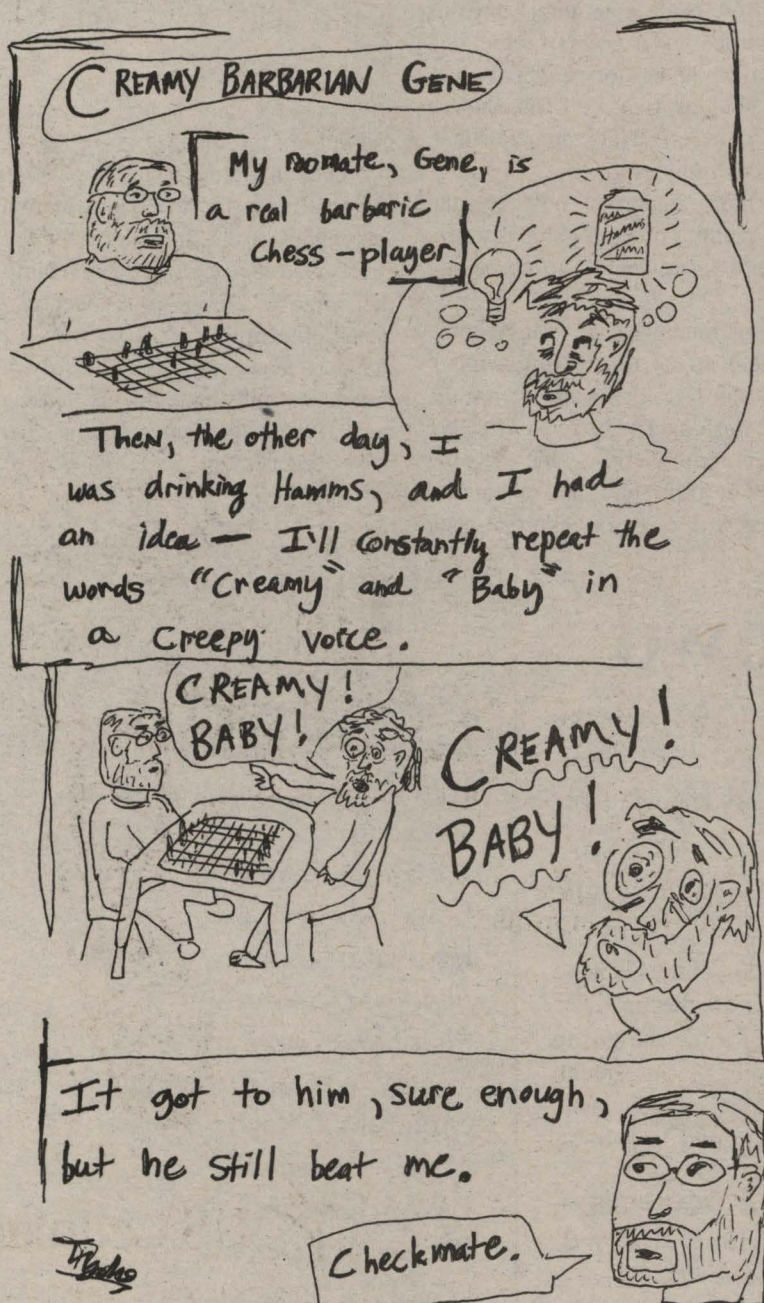 CREAMY BARBARIAN GENE
My roomate, Gene, is
a real barbaric
Chess-player
Hamms
Then, the other day, I
was drinking Hamms, and I had
an idea — I'll constantly repeat the
words "Creamy" and "Baby" in
a creepy voice.
CREAMY!
BABY!
CREAMY!
BABY!
It got to him, sure enough,
but he still beat me.
Checkmate.